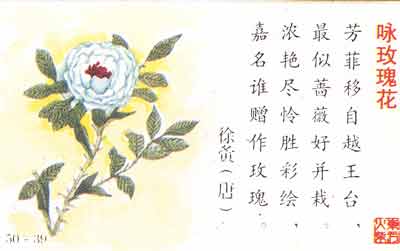 咏玫瑰花
芳菲移自越王台，
最似蔷薇好并栽。
浓艳尽怜胜彩绘，
嘉名谁赠作玫瑰。
徐夤（唐）
50-39